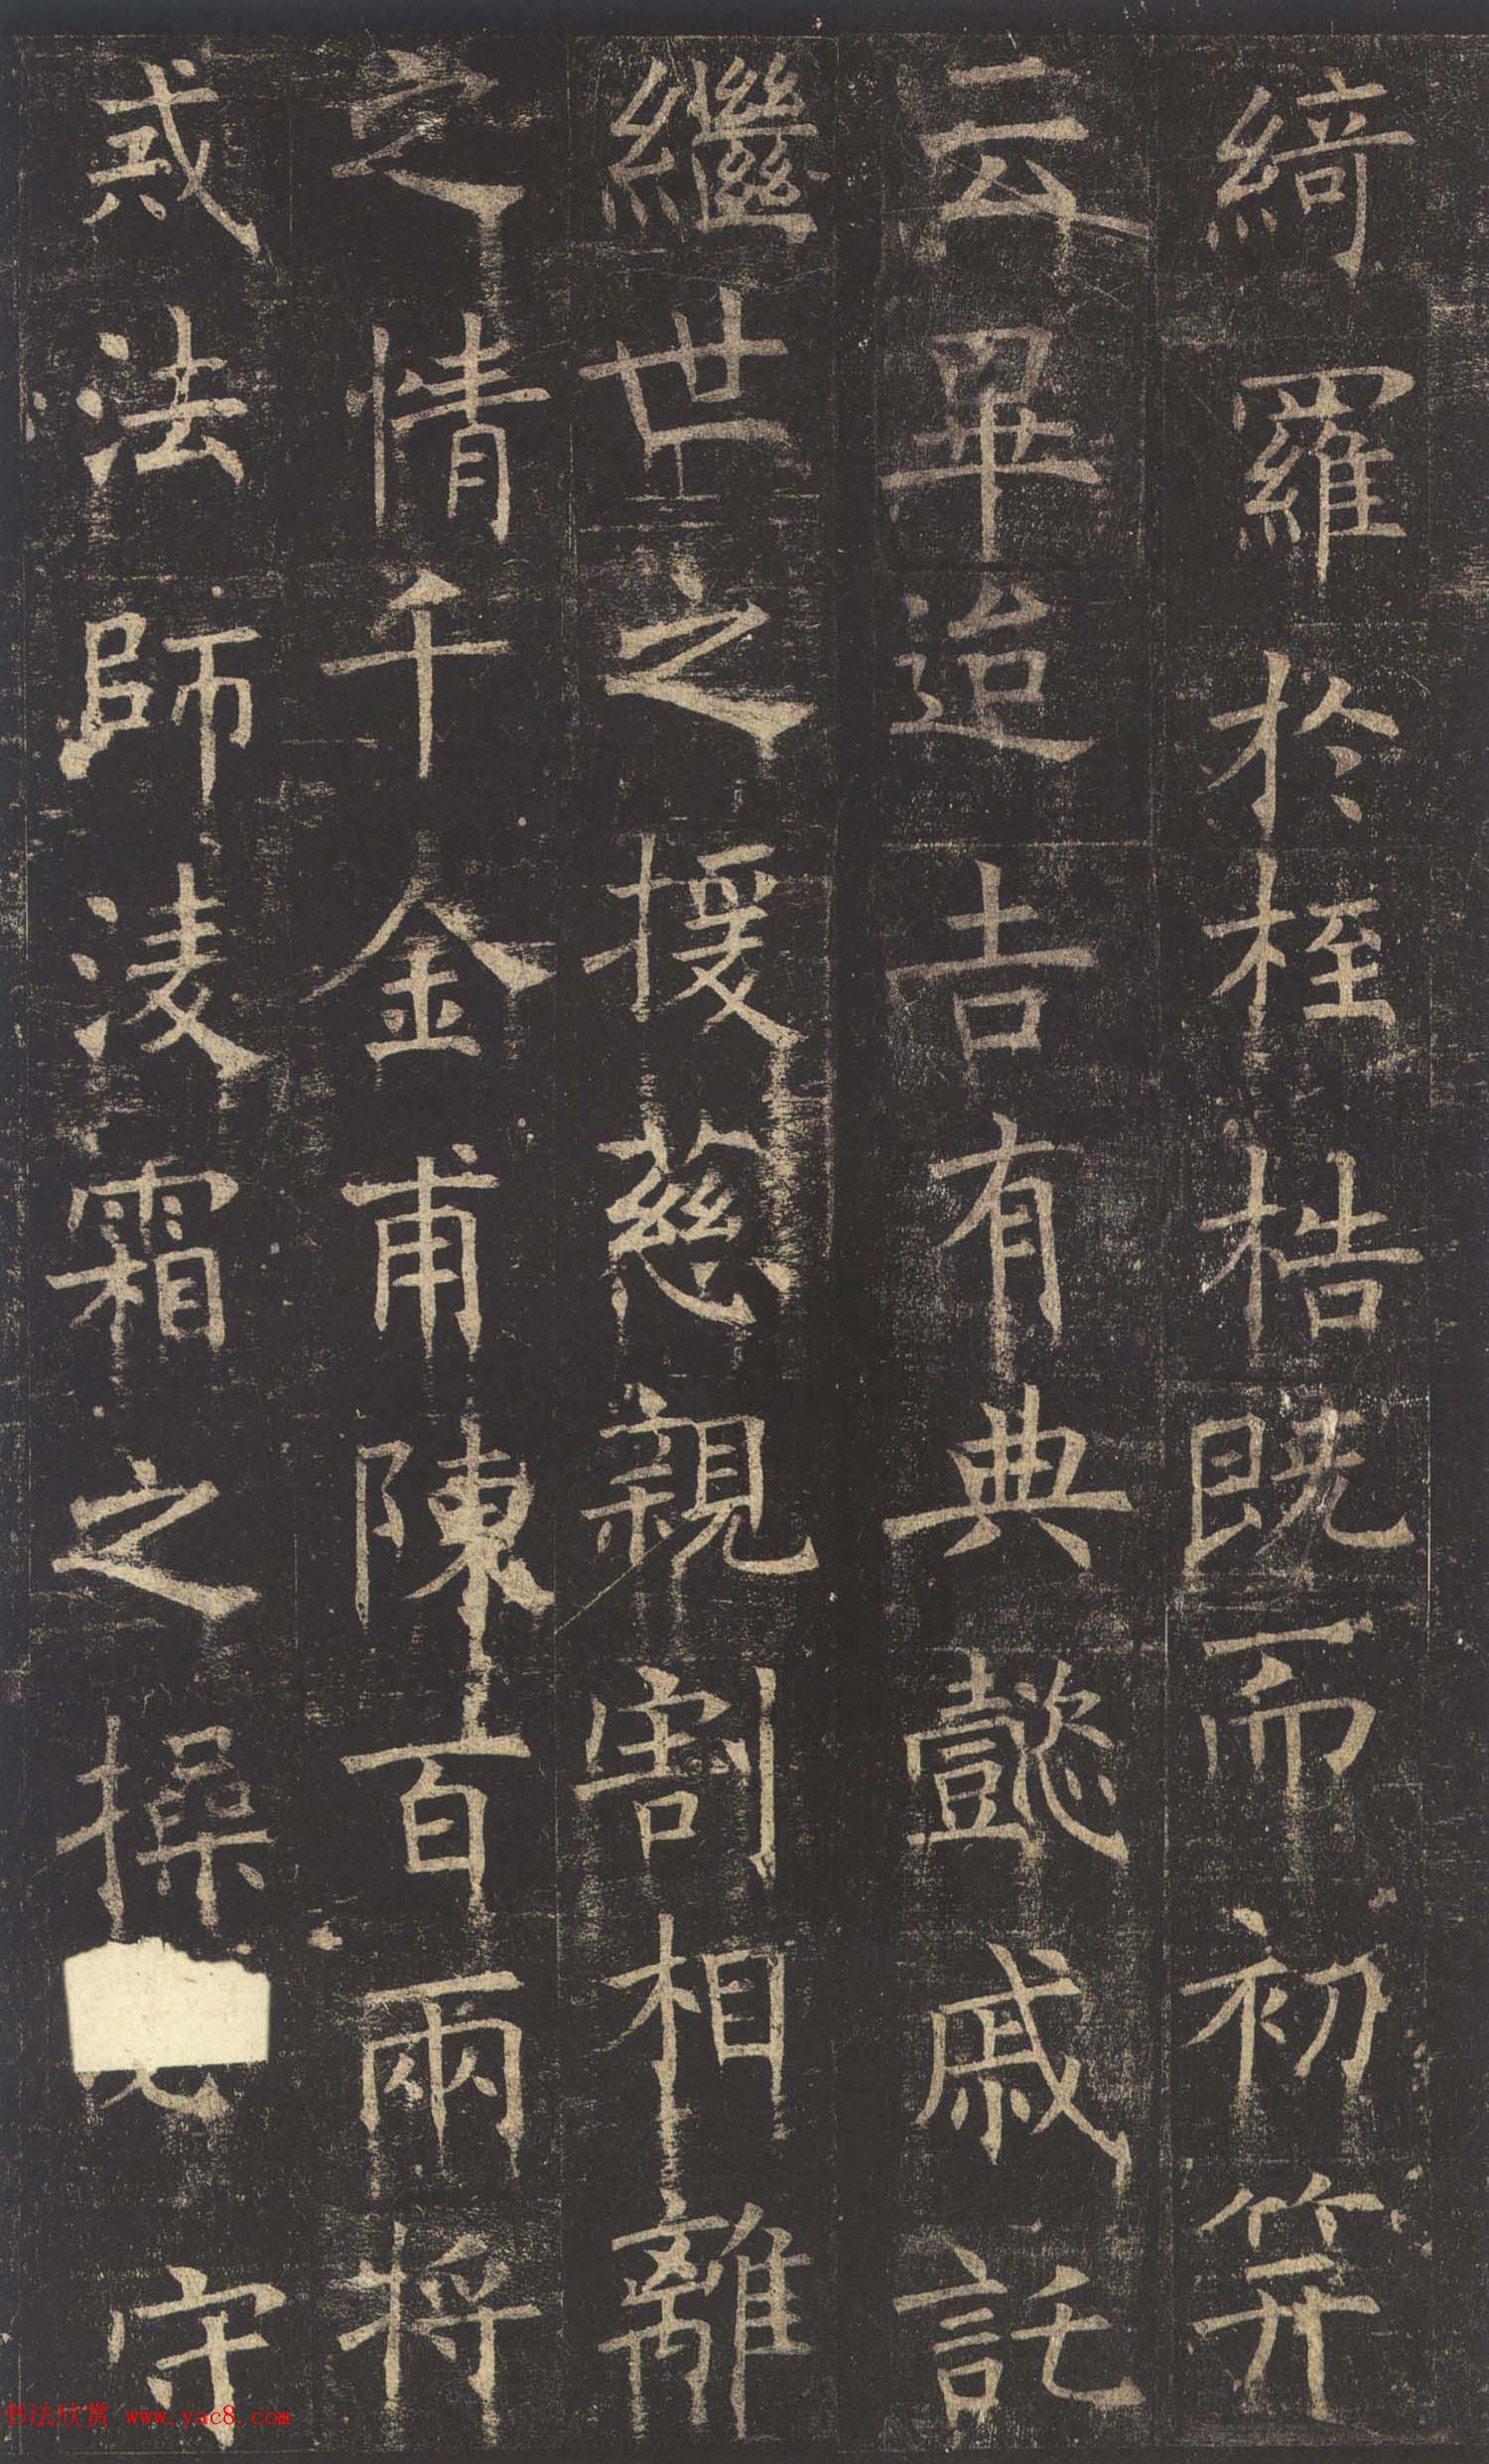 綺羅於桎梏既而初笄
云畢迨吉有典懿戚託
繼世之援慈親割相離
之情千金甫陳百兩將
戒法師淩霜之操
守
书法欣赏 www.yac8.com